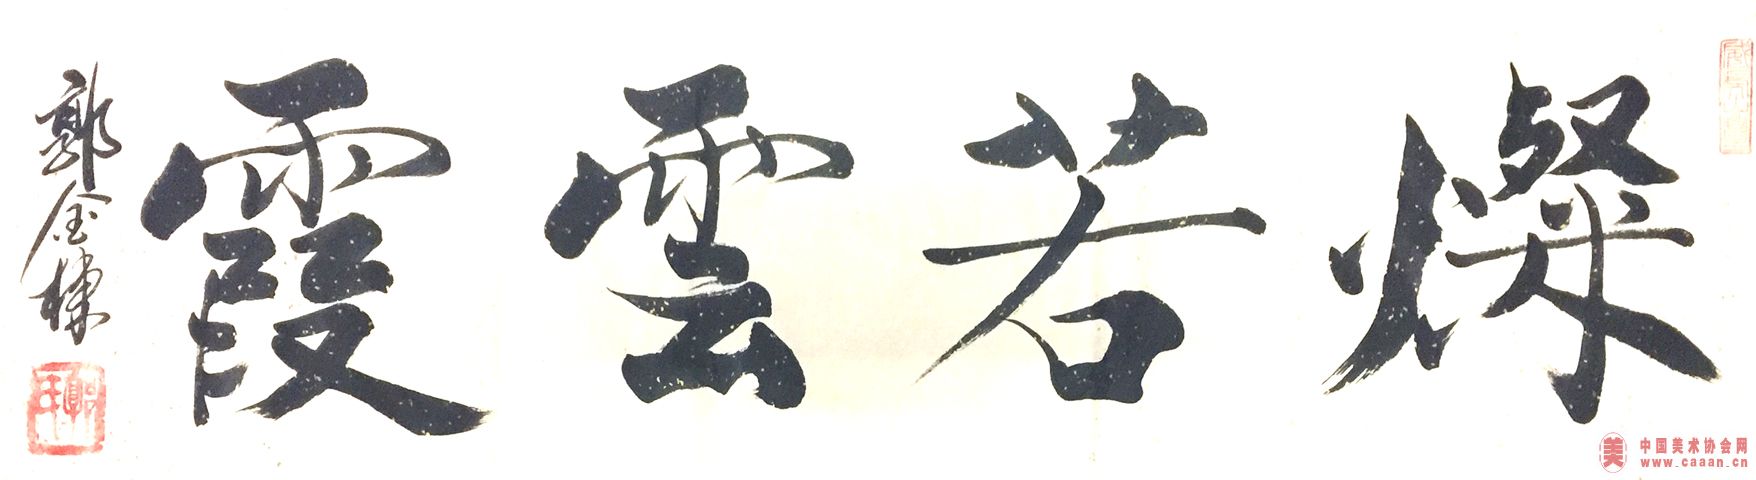 燦若雲霞
郭金棟
美 中国美术协会网
www.caaan.cn